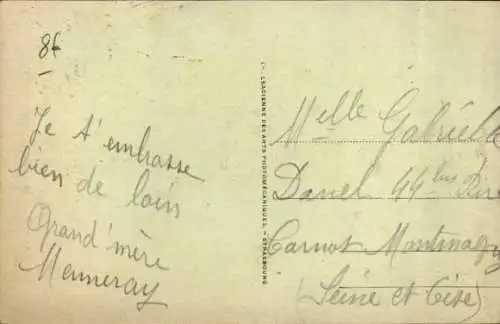 8f
Je t'embrasse
bien de loin
Grand'mère
Menneray
L'ALSACIENNE DES ARTS PHOTOMÉCANIQUES. - STRASBOURG
Melle Gabriel
Danel 44 bis Rue
Carnot Montmagny
(Seine et Oise)